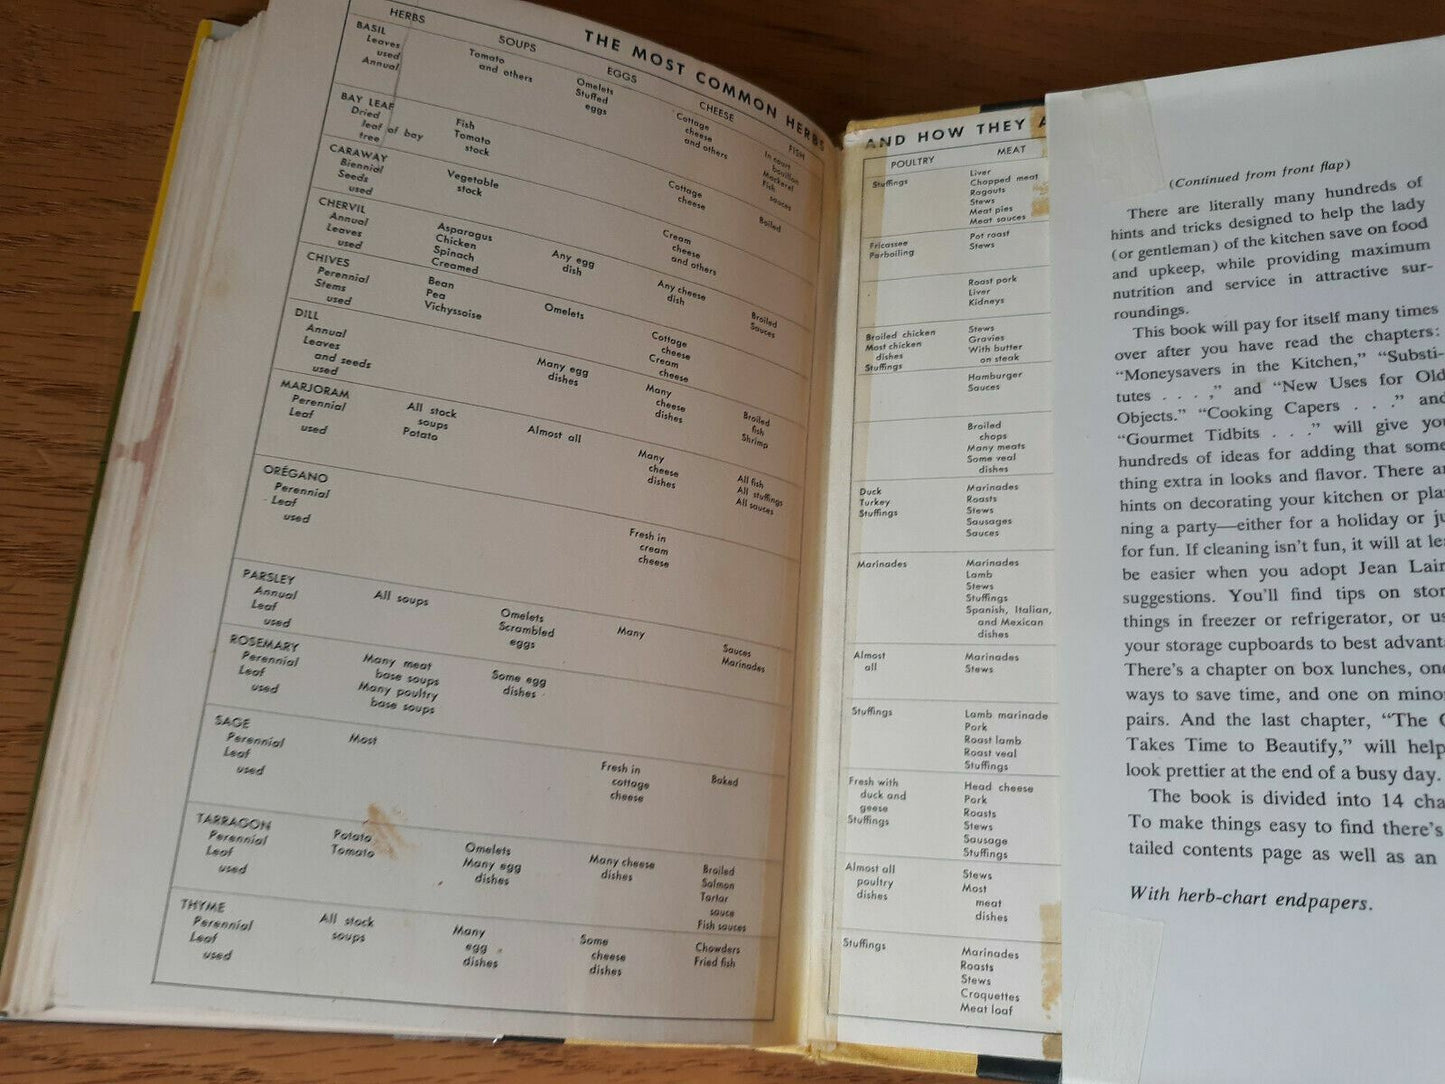 THE MOST COMMON HERBS
HERBS
SOUPS
EGGS
CHEESE
FISH
BASIL
Leaves
used
Annual
Tomato
and others
Omelets
Stuffed
eggs
Cottage
cheese
and others
In court
bouillon
Mackerel
Fish
sauces
BAY LEAF
Dried
leaf of bay
tree
Fish
Tomato
stock
Cottage
cheese
Boiled
CARAWAY
Biennial
Seeds
used
Vegetable
stock
Cream
cheese
and others
CHERVIL
Annual
Leaves
used
Asparagus
Chicken
Spinach
Creamed
Any egg
dish
Any cheese
dish
Broiled
Sauces
CHIVES
Perennial
Stems
used
Bean
Pea
Vichyssoise
Omelets
Cottage
cheese
Cream
cheese
DILL
Annual
Leaves
and seeds
used
Many egg
dishes
Many
cheese
dishes
Broiled
fish
Shrimp
MARJORAM
Perennial
Leaf
used
All stock
soups
Potato
Almost all
Many
cheese
dishes
All fish
All stuffings
All sauces
ORÉGANO
Perennial
Leaf
used
Fresh in
cream
cheese
PARSLEY
Annual
Leaf
used
All soups
Omelets
Scrambled
eggs
Many
Sauces
Marinades
ROSEMARY
Perennial
Leaf
used
Many meat
base soups
Many poultry
base soups
Some egg
dishes
SAGE
Perennial
Leaf
used
Most
Fresh in
cottage
cheese
Baked
TARRAGON
Perennial
Leaf
used
Potato
Tomato
Omelets
Many egg
dishes
Many cheese
dishes
Broiled
Salmon
Tartar
sauce
Fish sauces
THYME
Perennial
Leaf
used
All stock
soups
Many
egg
dishes
Some
cheese
dishes
Chowders
Fried fish
AND HOW THEY A
POULTRY
MEAT
Stuffings
Liver
Chopped meat
Ragouts
Stews
Meat pies
Meat sauces
Fricassee
Parboiling
Pot roast
Stews
Roast pork
Liver
Kidneys
Broiled chicken
Most chicken
dishes
Stuffings
Stews
Gravies
With butter
on steak
Hamburger
Sauces
Broiled
chops
Many meats
Some veal
dishes
Duck
Turkey
Stuffings
Marinades
Roasts
Stews
Sausages
Sauces
Marinades
Marinades
Lamb
Stews
Stuffings
Spanish, Italian,
and Mexican
dishes
Almost
all
Marinades
Stews
Stuffings
Lamb marinade
Pork
Roast lamb
Roast veal
Stuffings
Fresh with
duck and
geese
Stuffings
Head cheese
Pork
Roasts
Stews
Sausage
Stuffings
Almost all
poultry
dishes
Stews
Most
meat
dishes
Stuffings
Marinades
Roasts
Stews
Croquettes
Meat loaf
(Continued from front flap)
There are literally many hundreds of
hints and tricks designed to help the lady
(or gentleman) of the kitchen save on food
and upkeep, while providing maximum
nutrition and service in attractive sur-
roundings.
This book will pay for itself many times
over after you have read the chapters:
“Moneysavers in the Kitchen,” “Substi-
tutes . . . ,” and “New Uses for Old
Objects.” “Cooking Capers . . .” and
“Gourmet Tidbits . . .” will give you
hundreds of ideas for adding that some-
thing extra in looks and flavor. There ar
hints on decorating your kitchen or plan
ning a party—either for a holiday or ju
for fun. If cleaning isn’t fun, it will at lea
be easier when you adopt Jean Lair
suggestions. You’ll find tips on stor
things in freezer or refrigerator, or us
your storage cupboards to best advant
There’s a chapter on box lunches, one
ways to save time, and one on mino
pairs. And the last chapter, “The C
Takes Time to Beautify,” will help
look prettier at the end of a busy day.
The book is divided into 14 cha
To make things easy to find there’s
tailed contents page as well as an
With herb-chart endpapers.